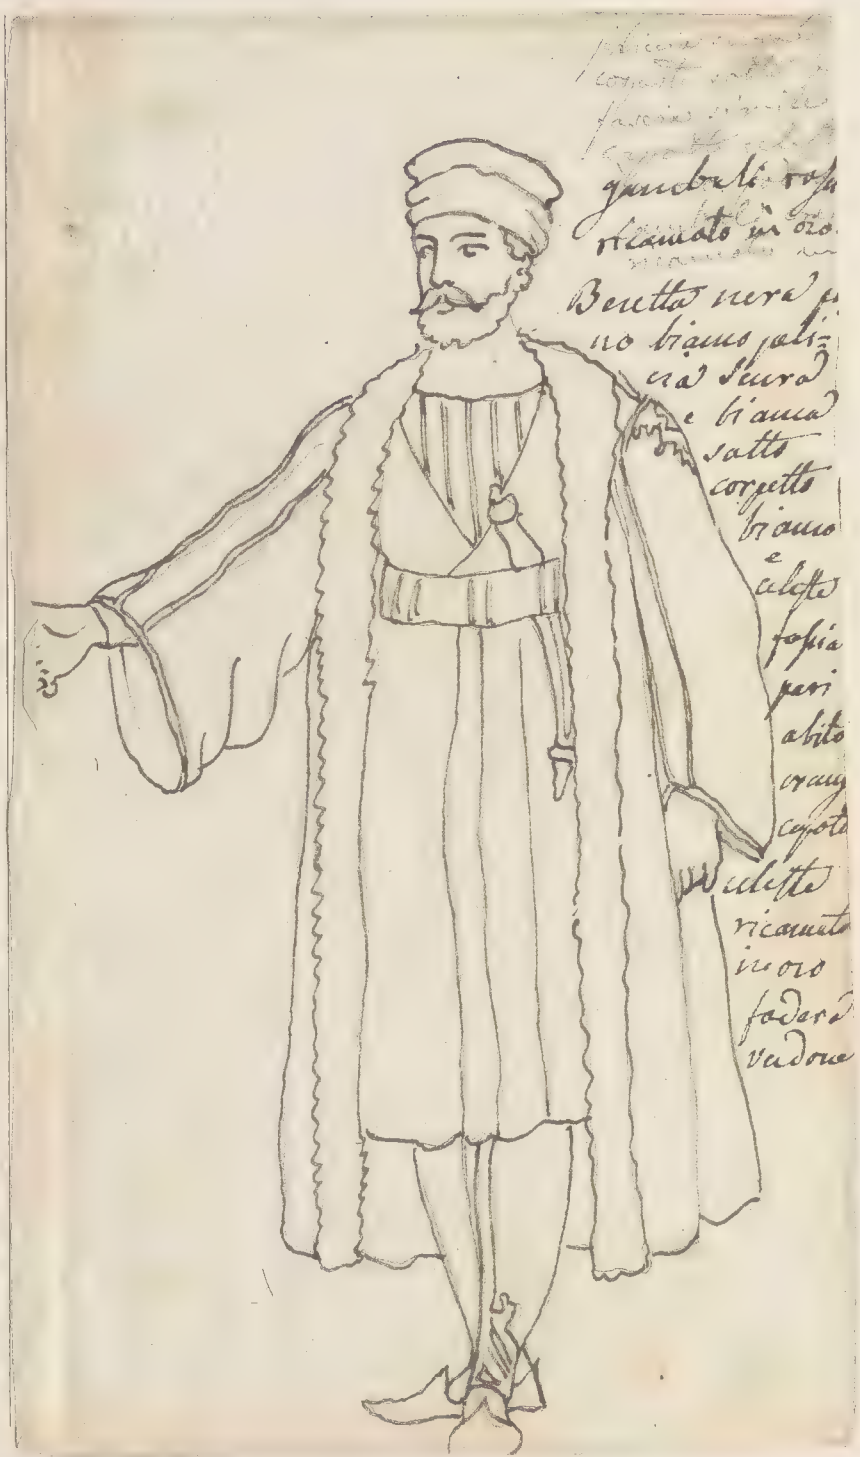 fascia simile
gambali rossi
ricamato in oro
Beretta nera
no bianco peli=
cia scura
e bianca
sotto
corpetto
bianco
e
celeste
fascia
pari
abito
orang
capoto
celeste
ricamato
in oro
fodera
verdone